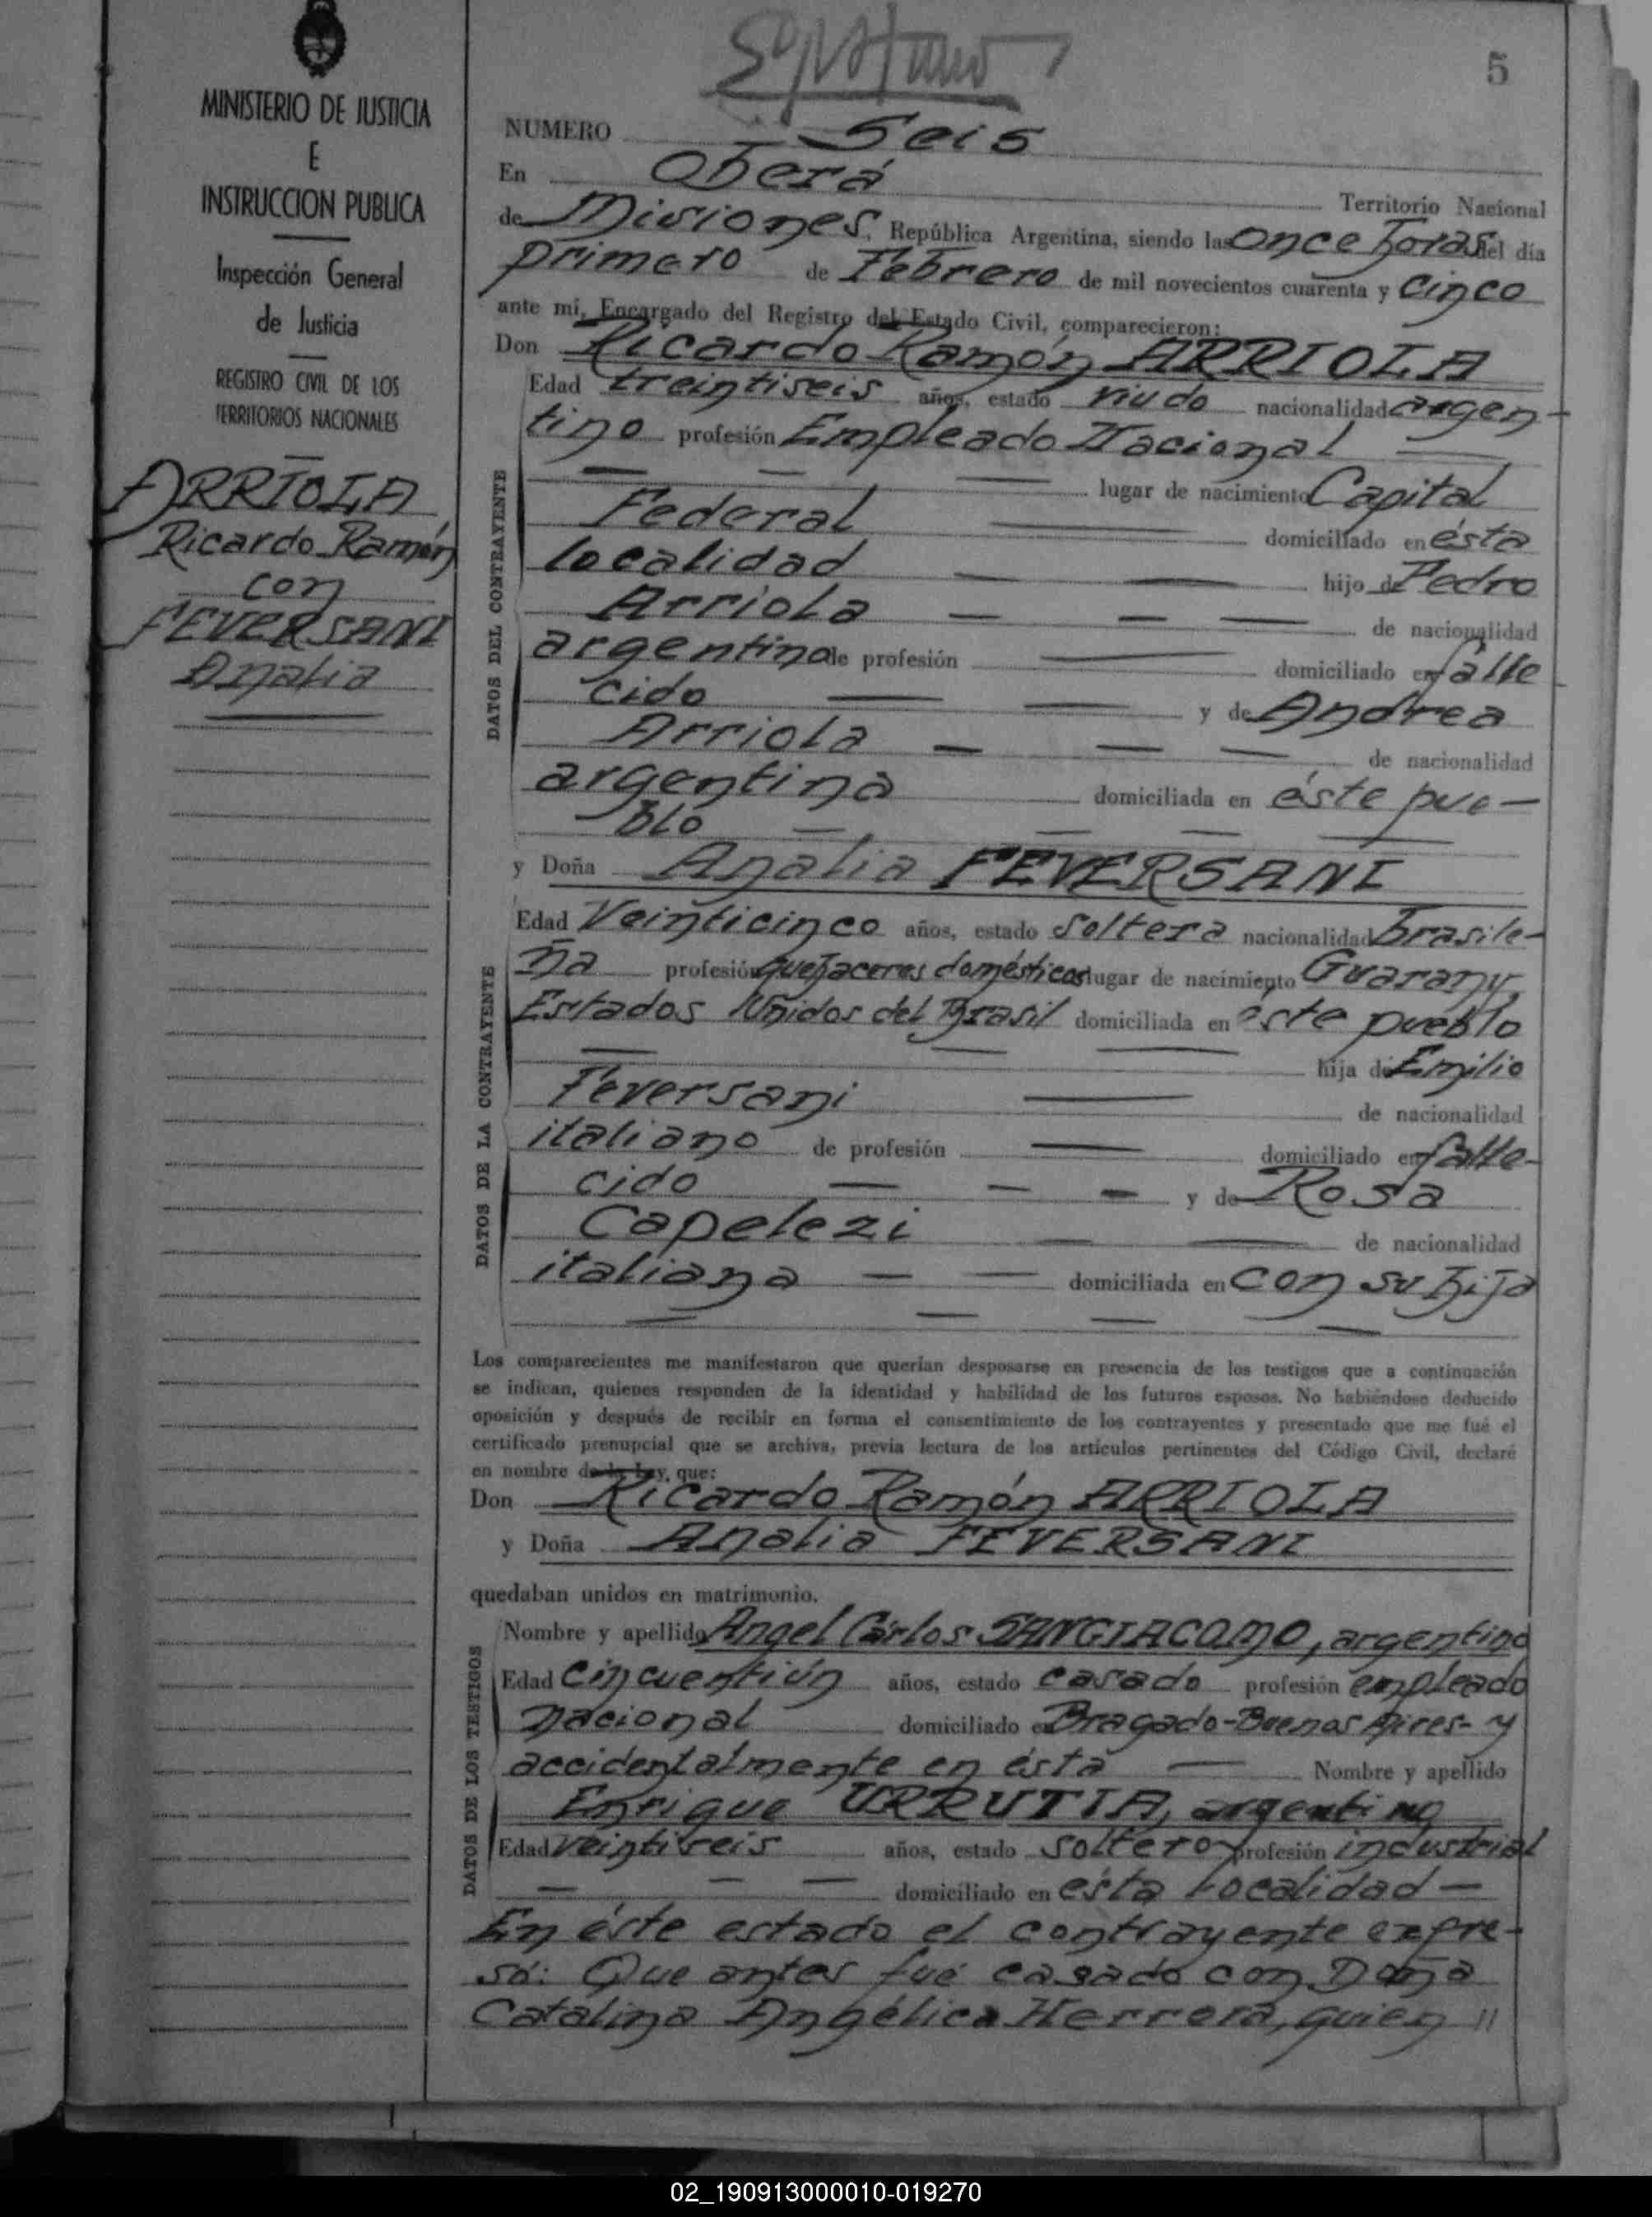 5
MINISTERIO DE JUSTICIA
E
INSTRUCCION PUBLICA
Inspección General
de Justicia
REGISTRO CIVIL DE LOS
TERRITORIOS NACIONALES
ARRIOLA
Ricardo Ramón
con
FEVERSANI
Analia
NUMERO Seis
En Oberá Territorio Nacional
de Misiones, República Argentina, siendo las once horas del día
primero de Febrero de mil novecientos cuarenta y cinco
ante mí, Encargado del Registro del Estado Civil, comparecieron:
Don Ricardo Ramón ARRIOLA
DATOS DEL CONTRAYENTE
Edad treintiseis años, estado viudo nacionalidad argen-
tino profesión Empleado Nacional
lugar de nacimiento Capital
Federal domiciliado en ésta
localidad hijo de Pedro
Arriola de nacionalidad
argentino de profesión domiciliado en falle
cido y de Andrea
Arriola de nacionalidad
argentina domiciliada en éste pue-
blo
y Doña Analia FEVERSANI
DATOS DE LA CONTRAYENTE
Edad Veinticinco años, estado soltera nacionalidad brasile-
ña profesión quehaceres domésticos lugar de nacimiento Guarany,
Estados Unidos del Brasil domiciliada en éste pueblo
hija de Emilio
Feversani de nacionalidad
italiano de profesión domiciliado en falle-
cido y de Rosa
Capelezi de nacionalidad
italiana domiciliada en con su hija
Los comparecientes me manifestaron que querían desposarse en presencia de los testigos que a continuación
se indican, quienes responden de la identidad y habilidad de los futuros esposos. No habiéndose deducido
oposición y después de recibir en forma el consentimiento de los contrayentes y presentado que me fué el
certificado prenupcial que se archiva, previa lectura de los artículos pertinentes del Código Civil, declaré
en nombre de la Ley, que:
Don Ricardo Ramón ARRIOLA
y Doña Analia FEVERSANI
quedaban unidos en matrimonio.
DATOS DE LOS TESTIGOS
Nombre y apellido Angel Cárlos SANGIACOMO, argentino
Edad cincuentiún años, estado casado profesión empleado
nacional domiciliado en Bragado-Buenos Aires- y
accidentalmente en ésta Nombre y apellido
Enrique URRUTIA, argentino
Edad veintiseis años, estado soltero profesión industrial
domiciliado en ésta localidad
En éste estado el contrayente expre-
só: Que antes fué casado con Doña
Catalina Angélica Herrera, quien //
02_190913000010-019270